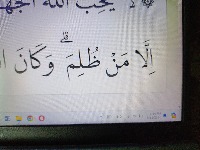 لَا يُحِبُّ اللَّهُ الْجَهْ
إِلَّا مَنْ ظُلِمَ ۗ وَكَانَ ا